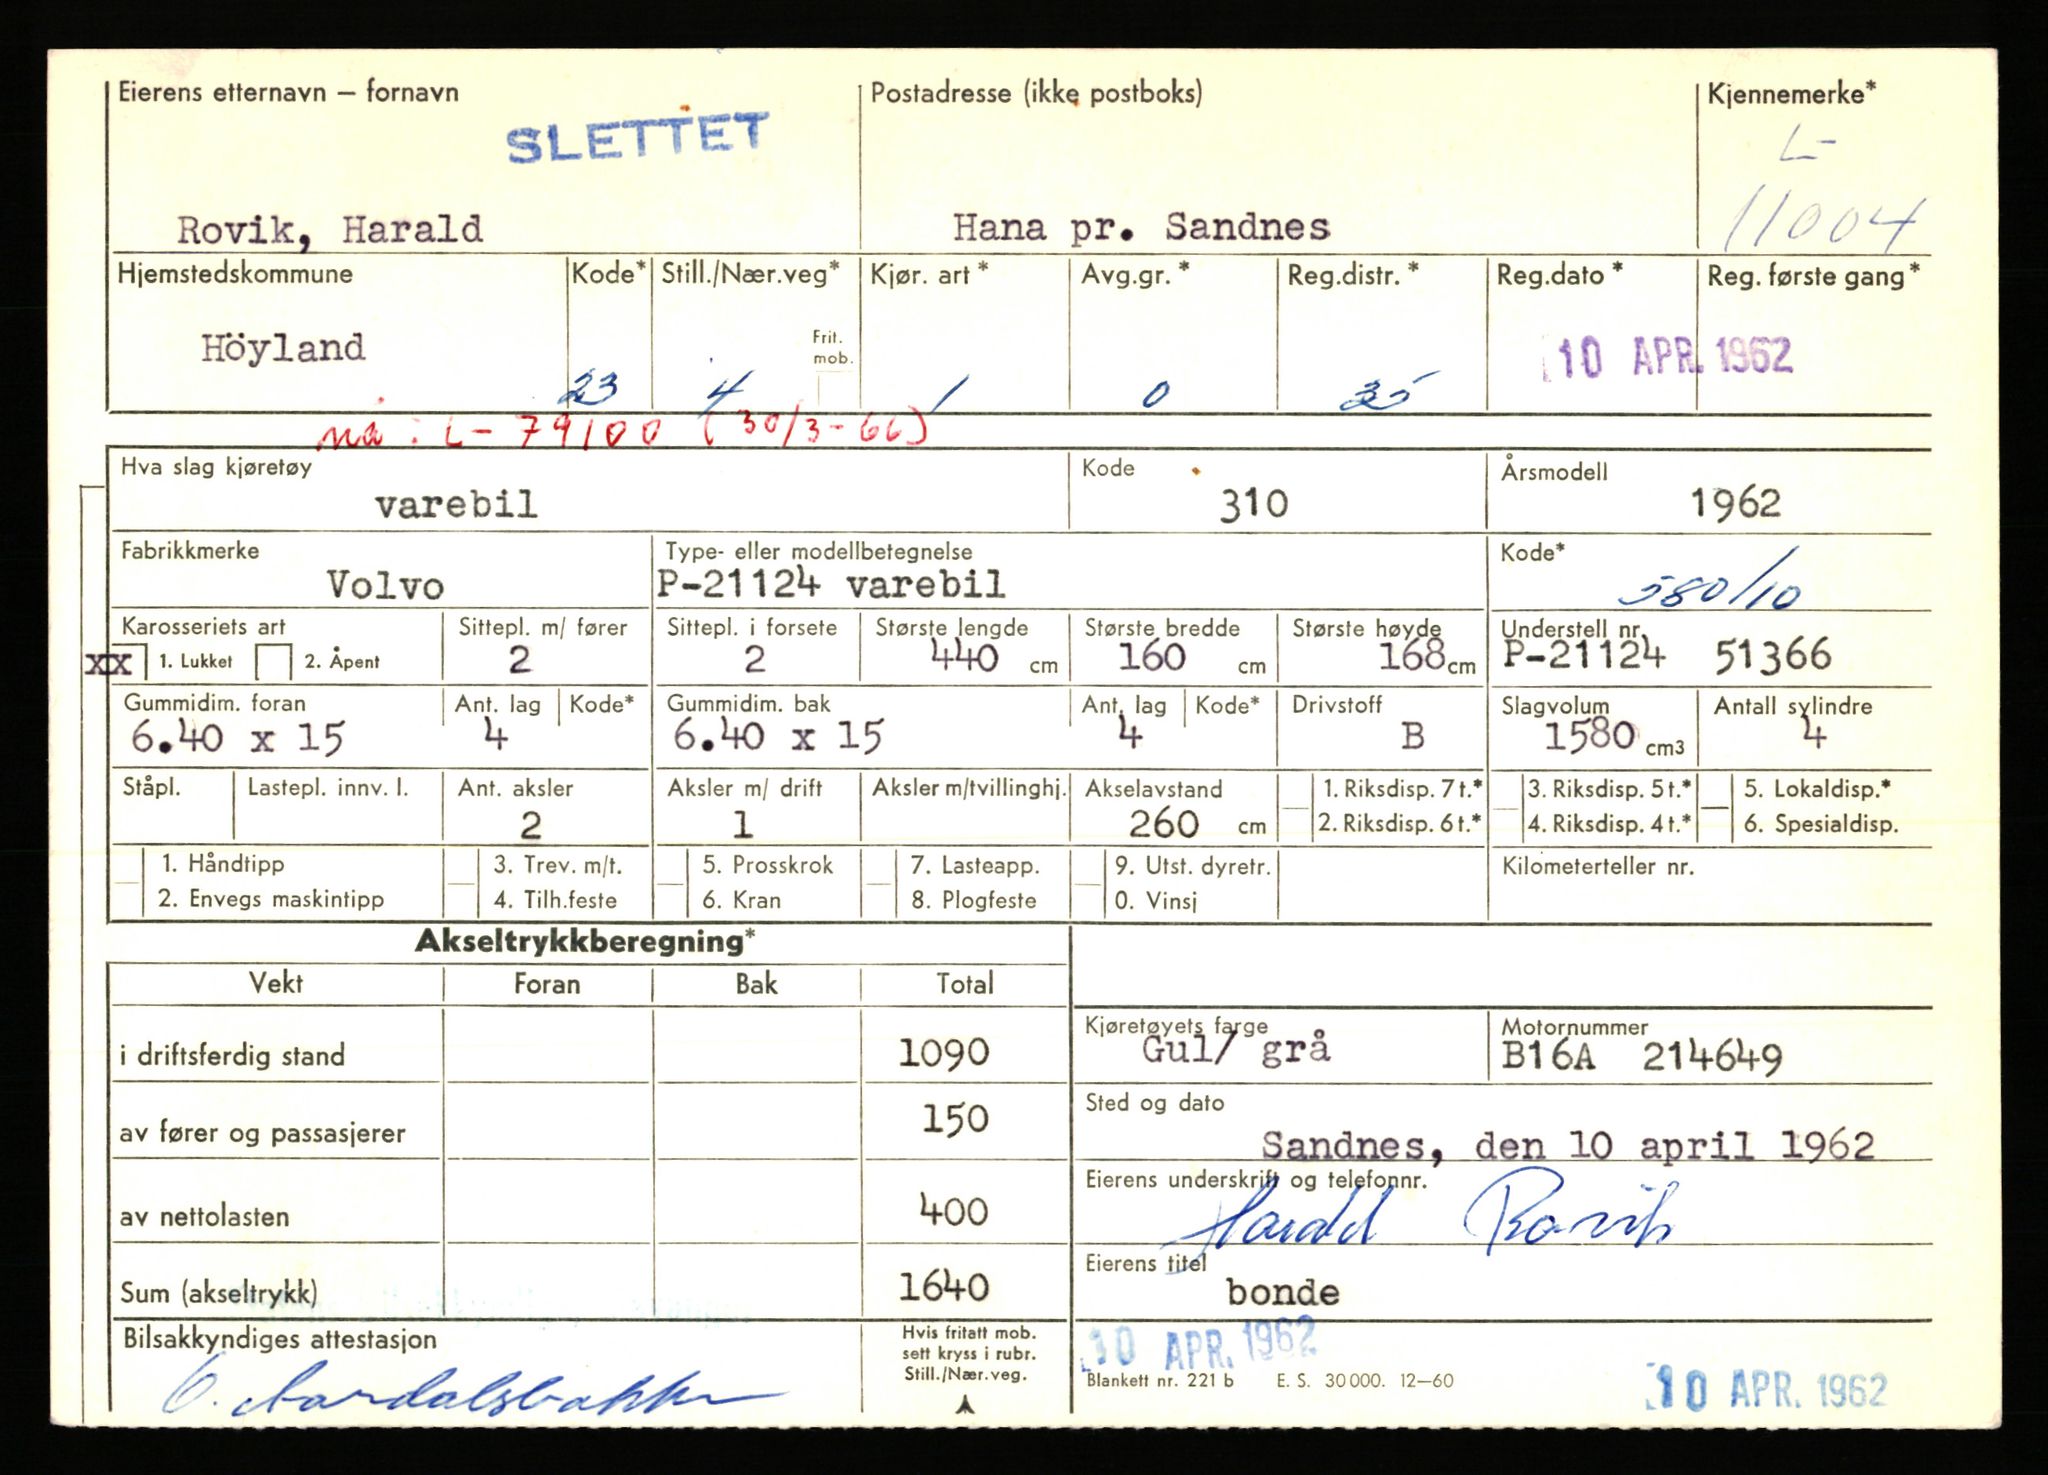 Eierens etternavn — fornavn Postadresse (ikke postboks) Kjennemerke*
SLETTET
L-
Rovik, Harald Hana pr. Sandnes 11004
Hjemstedskommune Kode* Still./Nær.veg* Kjør. art * Avg.gr. * Reg.distr. * Reg.dato * Reg. første gang *
Höyland Frit. mob. 10 APR. 1962
23 4 1 0 35
nå: L- 79100 (30/3-66)
Hva slag kjøretøy Kode Årsmodell
varebil 310 1962
Fabrikkmerke Type- eller modellbetegnelse Kode*
Volvo P-21124 varebil 580/10
Karosseriets art Sittepl. m/ fører Sittepl. i forsete Største lengde Største bredde Største høyde Understell nr.
xx 1. Lukket 2. Åpent 2 2 440 cm 160 cm 168 cm P-21124 51366
Gummidim. foran Ant. lag Kode* Gummidim. bak Ant. lag Kode* Drivstoff Slagvolum Antall sylindre
6.40 x 15 4 6.40 x 15 4 B 1580 cm3 4
Ståpl. Lastepl. innv. l. Ant. aksler Aksler m/ drift Aksler m/tvillinghj. Akselavstand 1. Riksdisp. 7 t.* 3. Riksdisp. 5 t.* 5. Lokaldisp.*
2 1 260 cm 2. Riksdisp. 6 t.* 4. Riksdisp. 4 t.* 6. Spesialdisp.
1. Håndtipp 3. Trev. m/t. 5. Prosskrok 7. Lasteapp. 9. Utst. dyretr. Kilometerteller nr.
2. Envegs maskintipp 4. Tilh.feste 6. Kran 8. Plogfeste 0. Vinsj
Akseltrykkberegning*
Vekt Foran Bak Total
Kjøretøyets farge Motornummer
i driftsferdig stand 1090 Gul/ grå B16A 214649
Sted og dato
av fører og passasjerer 150 Sandnes, den 10 april 1962
Eierens underskrift og telefonnr.
av nettolasten 400 Harald Rovik
Eierens titel
Sum (akseltrykk) 1640 bonde
Bilsakkyndiges attestasjon Hvis fritatt mob. 10 APR. 1962
sett kryss i rubr.
Still./Nær.veg. Blankett nr. 221 b E. S. 30 000. 12—60 10 APR. 1962